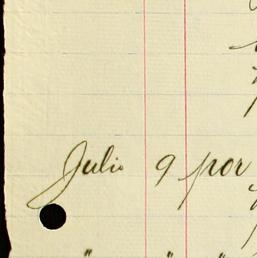 Julio 9 por
" " "